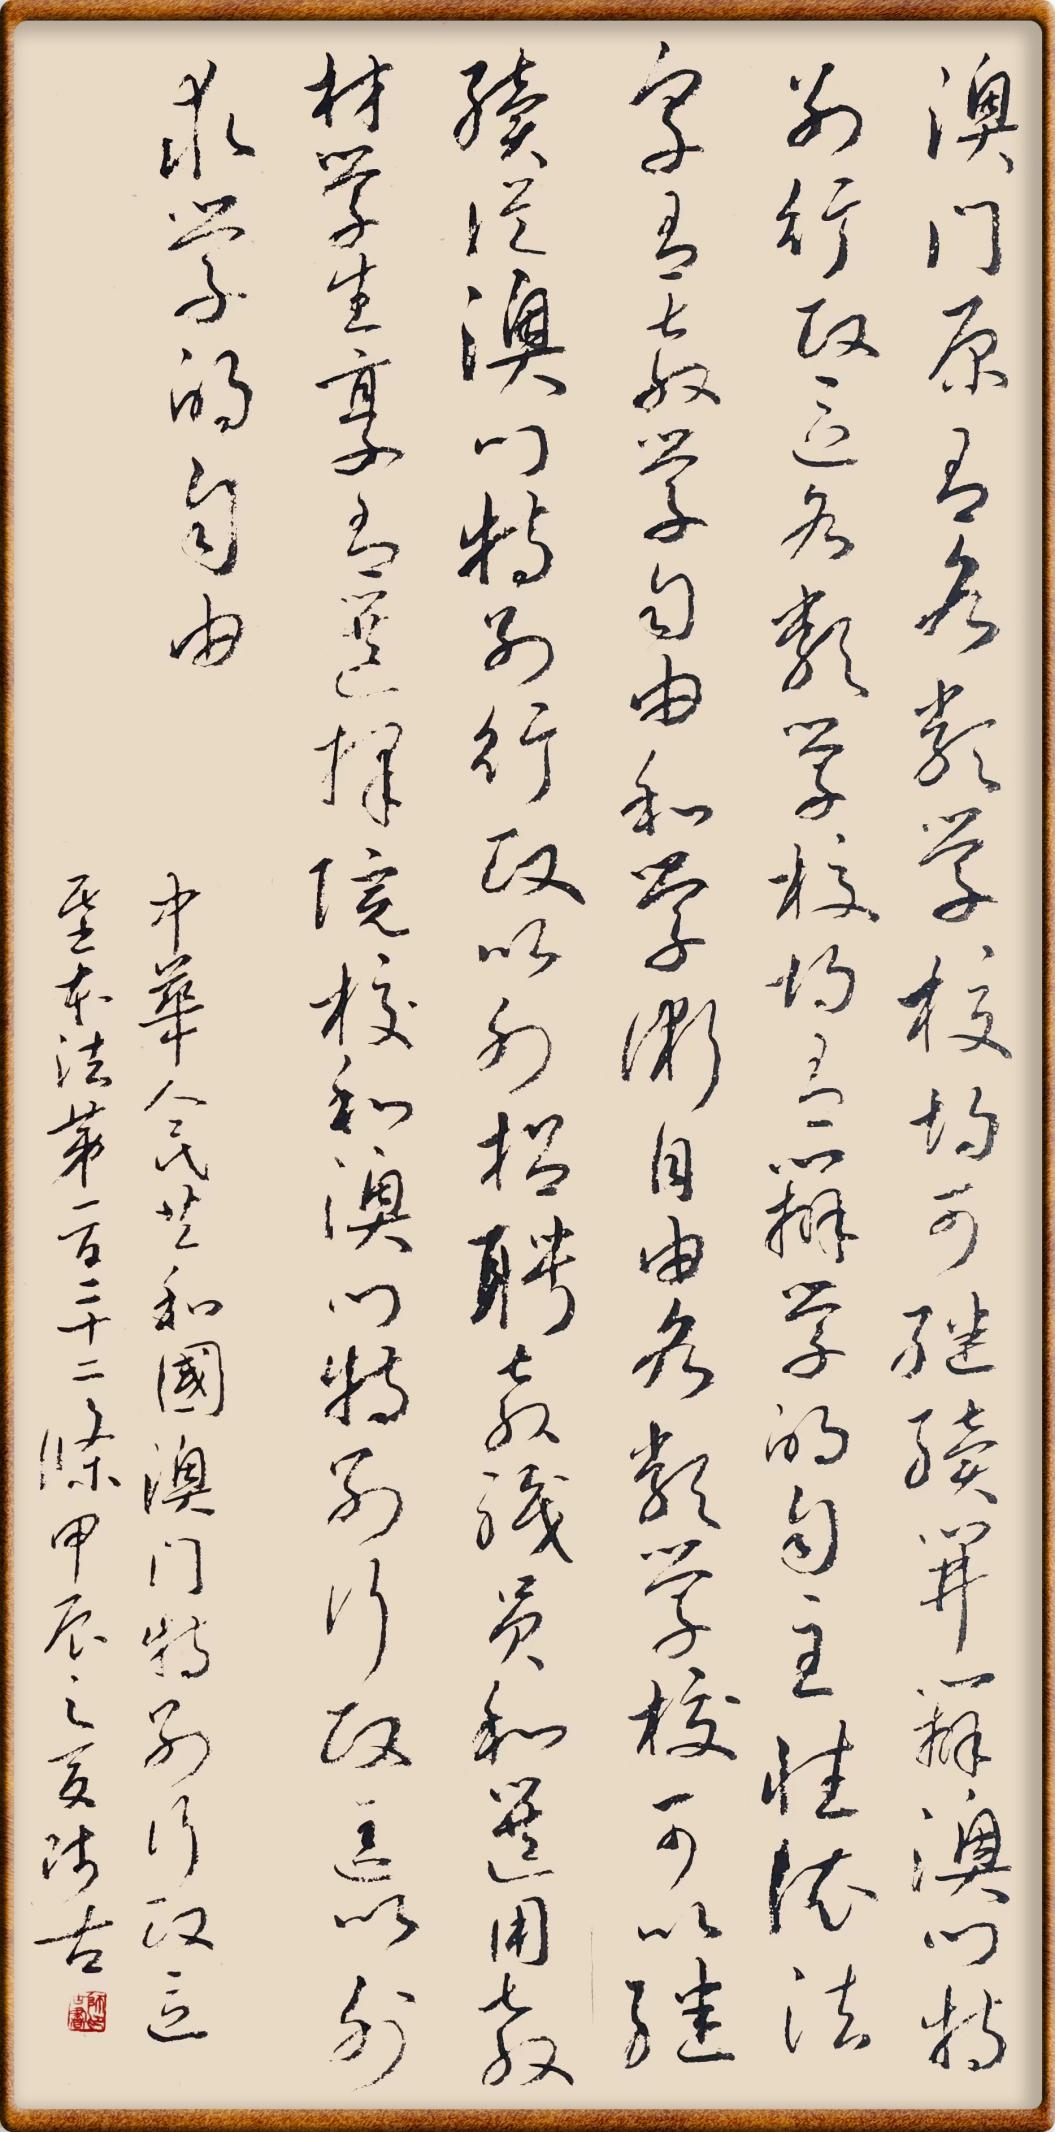 澳门原有各類学校均可继續開辦澳门特
别行政区各類学校均有辦学的自主性依法
享有教学自由和学術自由各類学校可以继
續從澳门特别行政以外招聘教職员和選用教
材学生享有選擇院校和澳门特别行政区以外
求学的自由
中華人民共和國澳门特别行政区
基本法第一百二十二條甲辰之夏師古